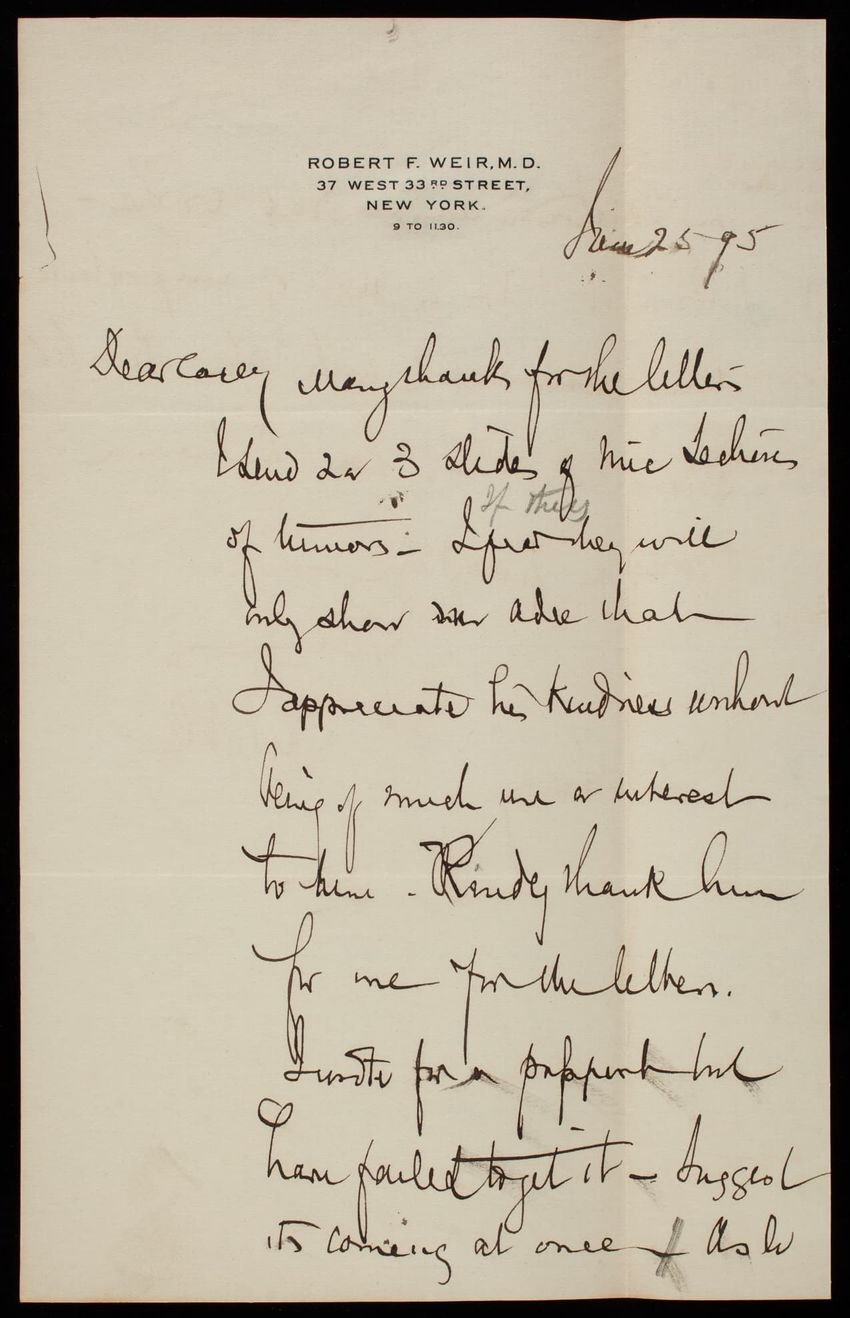 ROBERT F. WEIR, M.D.
37 WEST 33RD STREET,
NEW YORK.
9 TO 11.30.
25 95
Dear Casey Many thanks for the letters
I send 2 or 3 slides of mic Sections
of tumors – I fear they will
only show that
I appreciate his kindness without
being of much use or interest
to him. Kindly thank him
for me for the letters.
I wrote for a passport but
have failed to get it – Suggest
its coming at once – As to